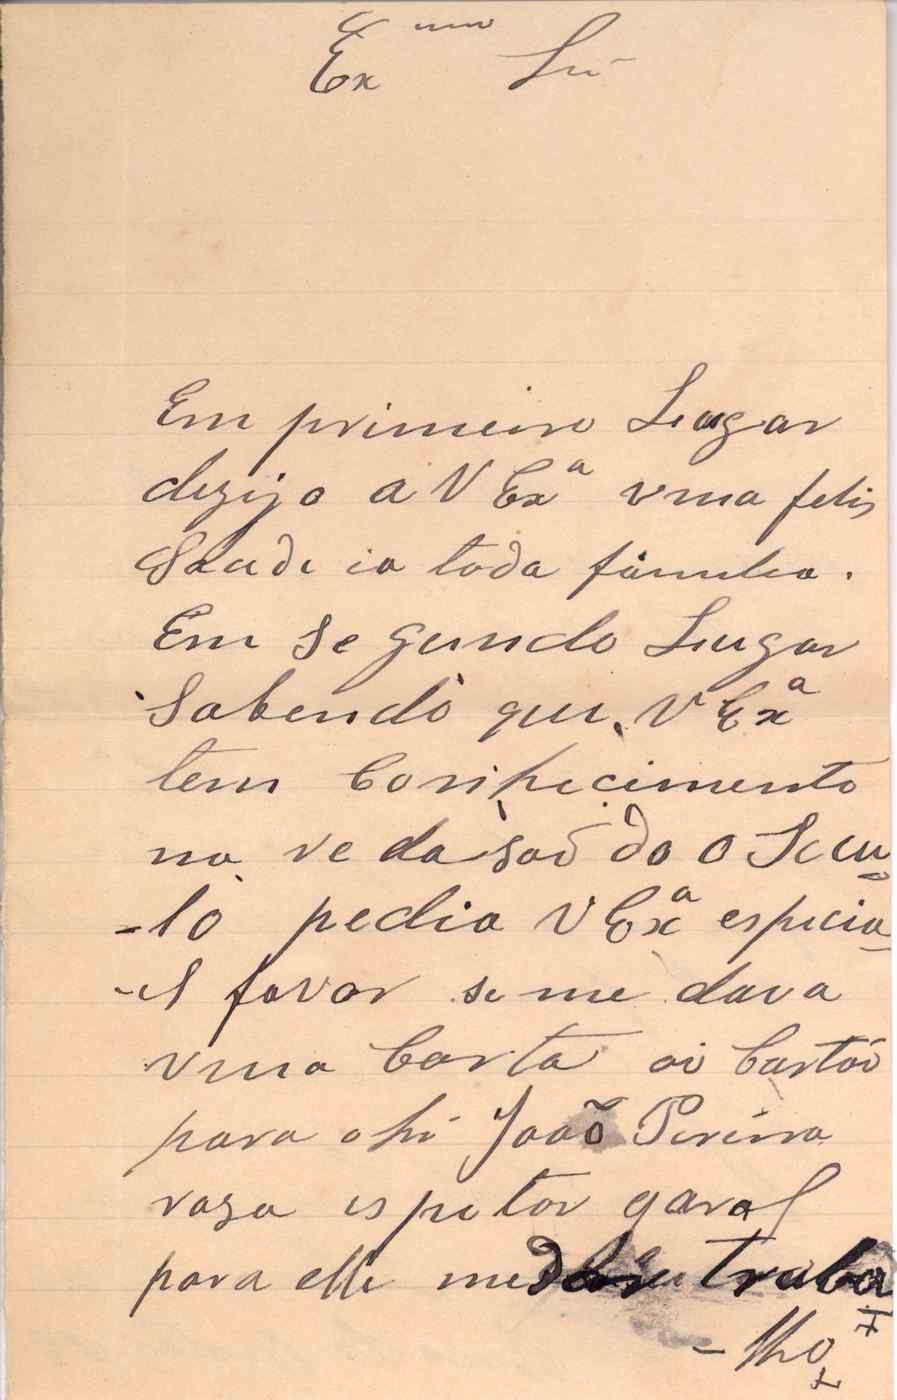 Exmo Snr
Em primeiro Lugar
dezijo a V Exa uma felis
Saude ia toda familia.
Em Segundo Lugar
Sabendo que V Exa
tem Conhecimento
na redasão do O Secu
-lo pedia V Exa especia
-el favor se me dava
uma Carta oi Cartão
para o hi João Pereira
roza espetor garal
para elle me traba
-lho